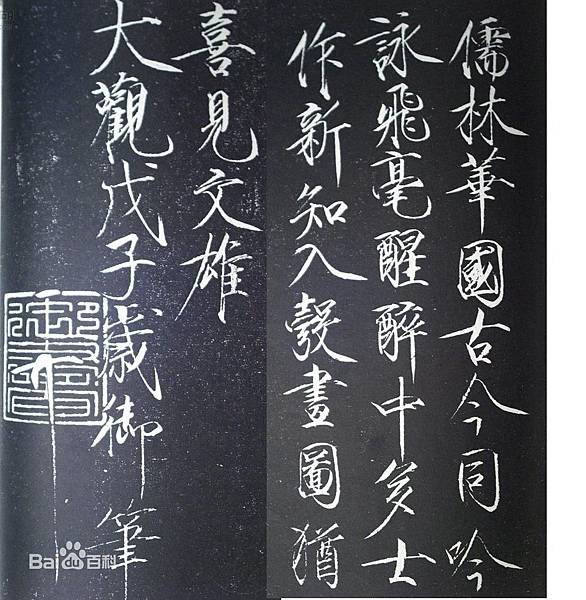 儒林華國古今同吟
詠飛毫醒醉中多士
作新知入彀畫圖猶
喜見文雄
大觀戊子歲御筆
Baidu百科